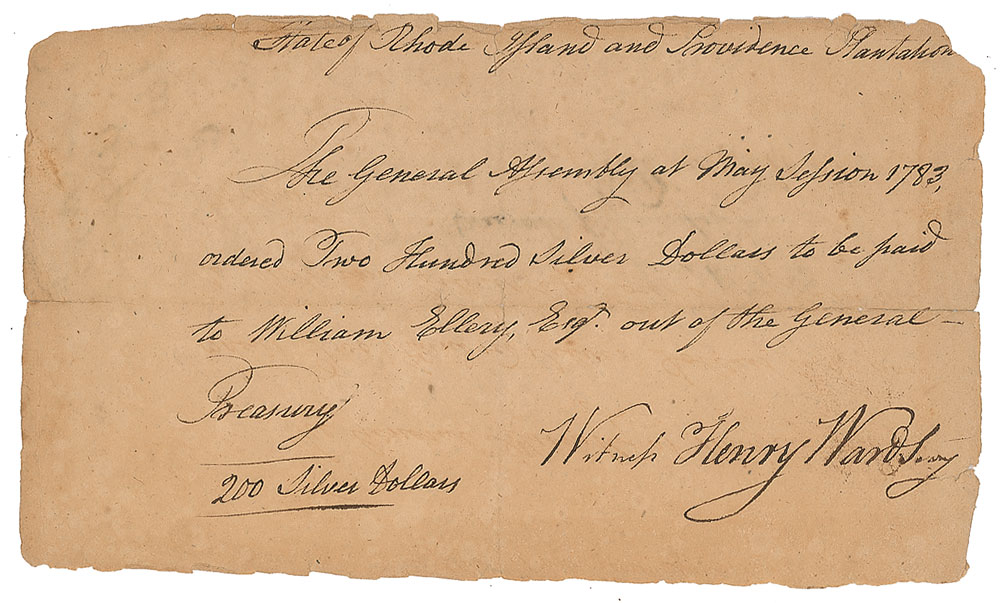 State of Rhode Island and Providence Plantation
The General Assembly at May Session 1783,
ordered Two Hundred Silver Dollars to be paid
to William Ellery, Esqr. out of the General –
Treasury
Witness Henry Ward Secry
200 Silver Dollars